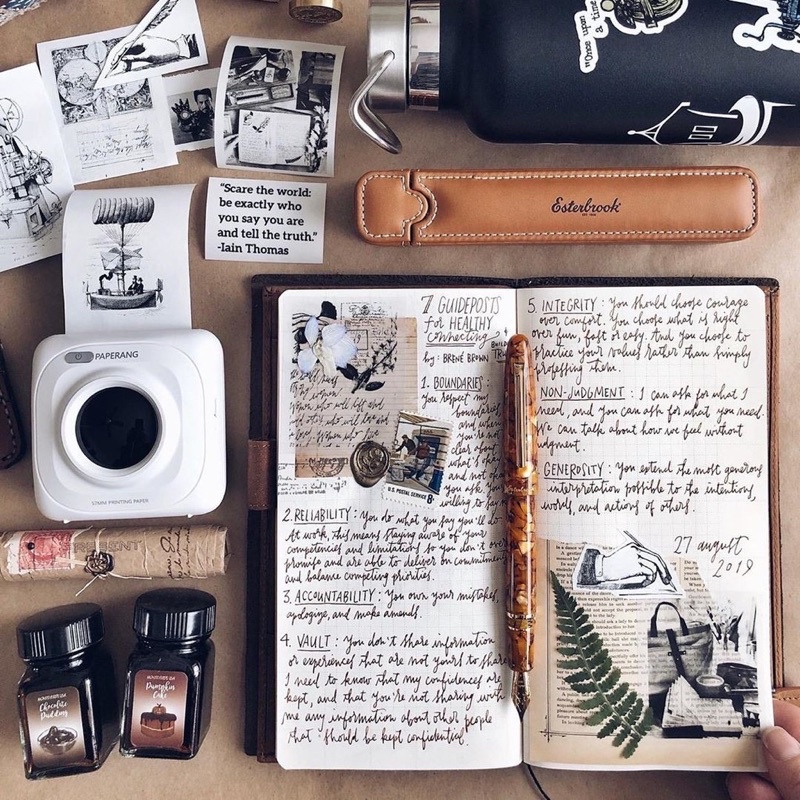 "Once upon
a time"
"Scare the world:
be exactly who
you say you are
and tell the truth."
-Iain Thomas
Esterbrook
PAPERANG
57MM PRINTING PAPER
Chocolate
Pudding
Pumpkin
Cake
7 GUIDEPOSTS
for HEALTHY
connecting
by: BRENÉ BROWN
1. BOUNDARIES:
You respect my
boundaries,
and when
you're not
clear about
what's
and not
you ask.
willing to
U.S. POSTAL SERVICE 8¢
2. RELIABILITY: You do what you say you'll do.
At work, this means staying aware of your
competencies and limitations so you don't over
promise and are able to deliver on commitments
and balance competing priorities.
3. ACCOUNTABILITY: You own your mistakes,
apologize, and make amends.
4. VAULT: You don't share information
or experiences that are not yours to share.
I need to know that my confidences are
kept, and that you're not sharing with
me any information about other people
that should be kept confidential.
5. INTEGRITY: You should choose courage
over comfort. You choose what is right
over fun, fast or easy. And you choose to
practice your values rather than simply
professing them.
NON-JUDGMENT: I can ask for what I
need, and you can ask for what you need.
We can talk about how we feel without
judgment.
GENEROSITY: You extend the most generous
interpretation possible to the intentions,
words, and actions of others.
27 august
2019